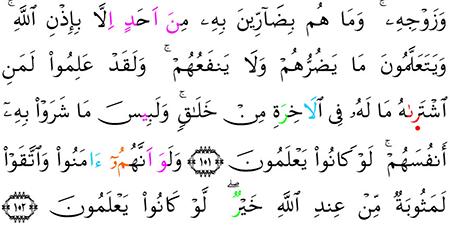 وَزَوْجِهِۦ ۚ وَمَا هُم بِضَآرِّينَ بِهِۦ مِنَ اَحَدٍ اِلَّا بِإِذْنِ اللَّهِ ۚ
وَيَتَعَلَّمُونَ مَا يَضُرُّهُمْ وَلَا يَنفَعُهُمْ ۚ وَلَقَدْ عَلِمُواْ لَمَنِ
اشْتَرٜىٰهُ مَا لَهُۥ فِى اِ۬لَاخِرَةِ مِنْ خَلَٰقٍ ۚ وَلَبِيسَ مَا شَرَوْاْ بِهِۦٓ
أَنفُسَهُمْ ۚ لَوْ كَانُواْ يَعْلَمُونَ ١٠١ وَلَوَ اَنَّهُمُۥٓ ءَامَنُواْ وَاتَّقَوْاْ
لَمَثُوبَةٌ مِّنْ عِندِ اللَّهِ خَيْرٌ ۖ لَّوْ كَانُواْ يَعْلَمُونَ ١٠٢